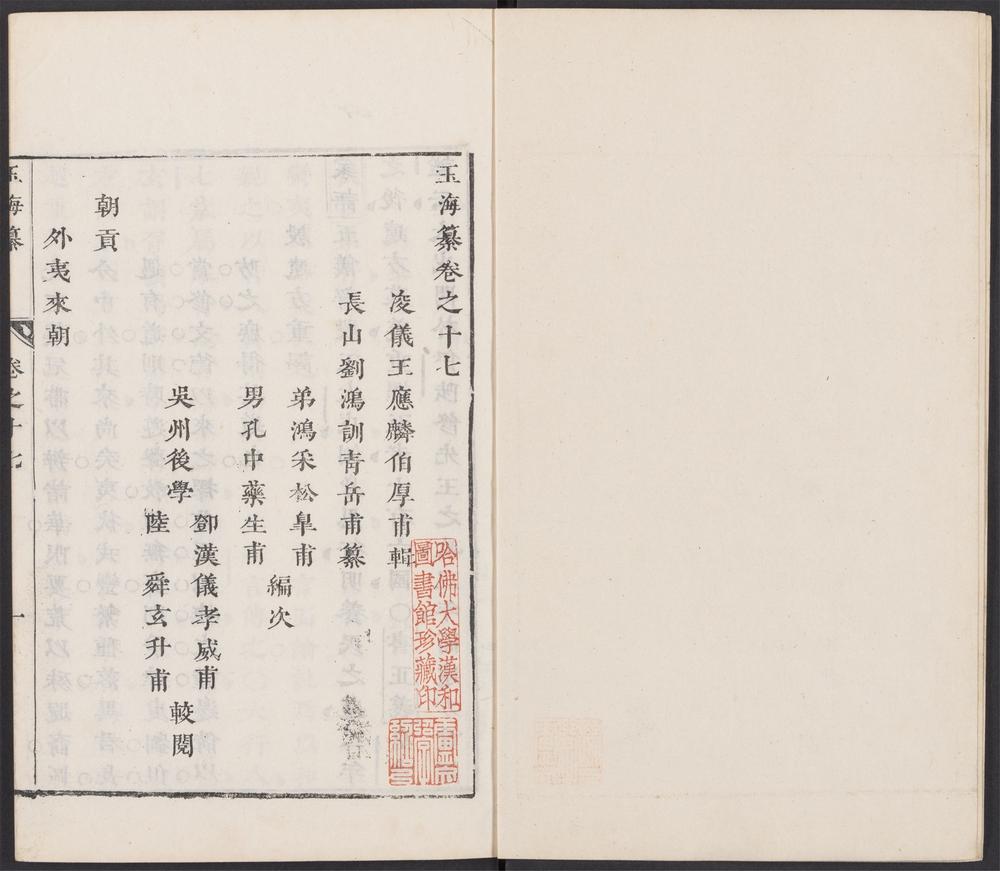 玉海纂卷之十七
凌儀王應麟伯厚甫輯
長山劉鴻訓青岳甫纂
弟鴻采松臯甫
男孔中藥生甫
編次
吳州後學
鄧漢儀孝威甫
陸舜玄升甫
較閱
朝貢
外夷來朝
玉海纂
卷之十七
一
哈佛大學漢和
圖書館珍藏印